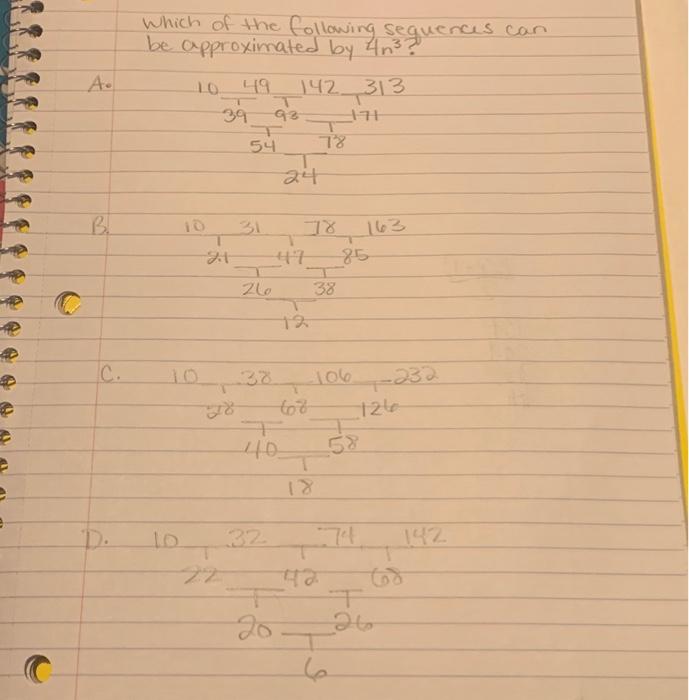 Which of the following sequences can
be approximated by 4n³?
A. 10 49 142 313
39 93 171
54 78
24
B. 10 31 78 163
21 47 85
26 38
12
C. 10 38 106 232
28 68 126
40 58
18
D. 10 32 74 142
22 42 68
20 26
6